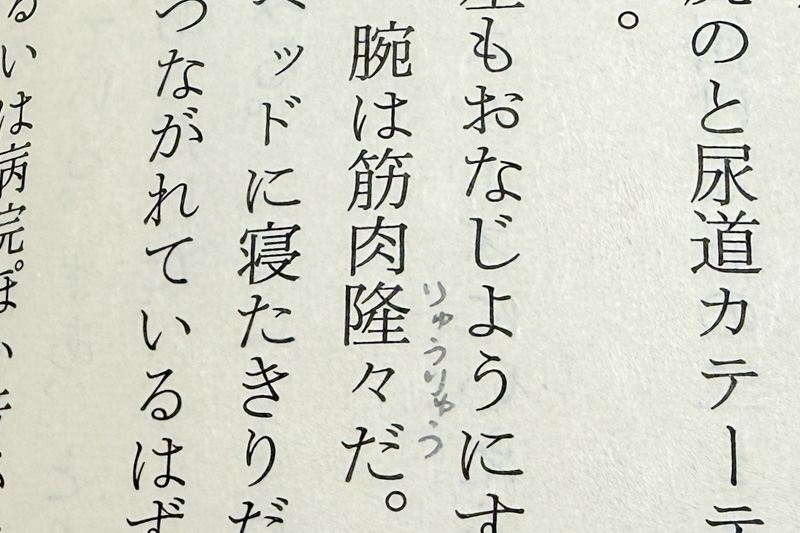 のと尿道カテーテ
。
もおなじようにす
りゅうりゅう
腕は筋肉隆々だ。
ッドに寝たきりだ
つながれているはず
るいは病院ぽい